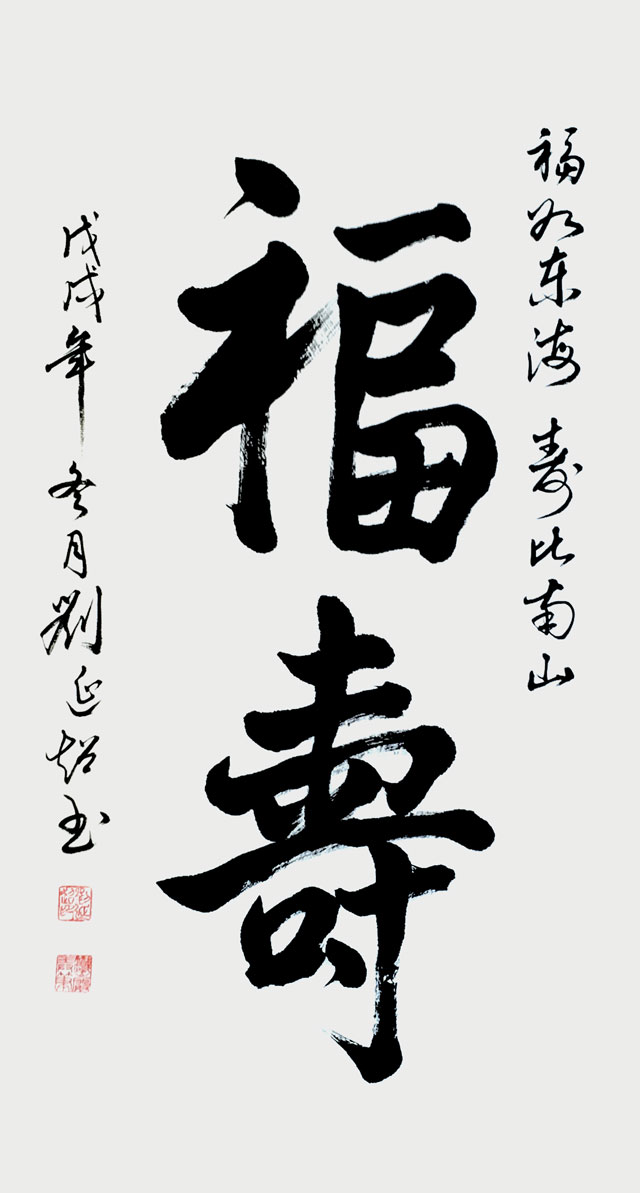 福如东海 寿比南山
福壽
戊戌年 冬月劉延超书